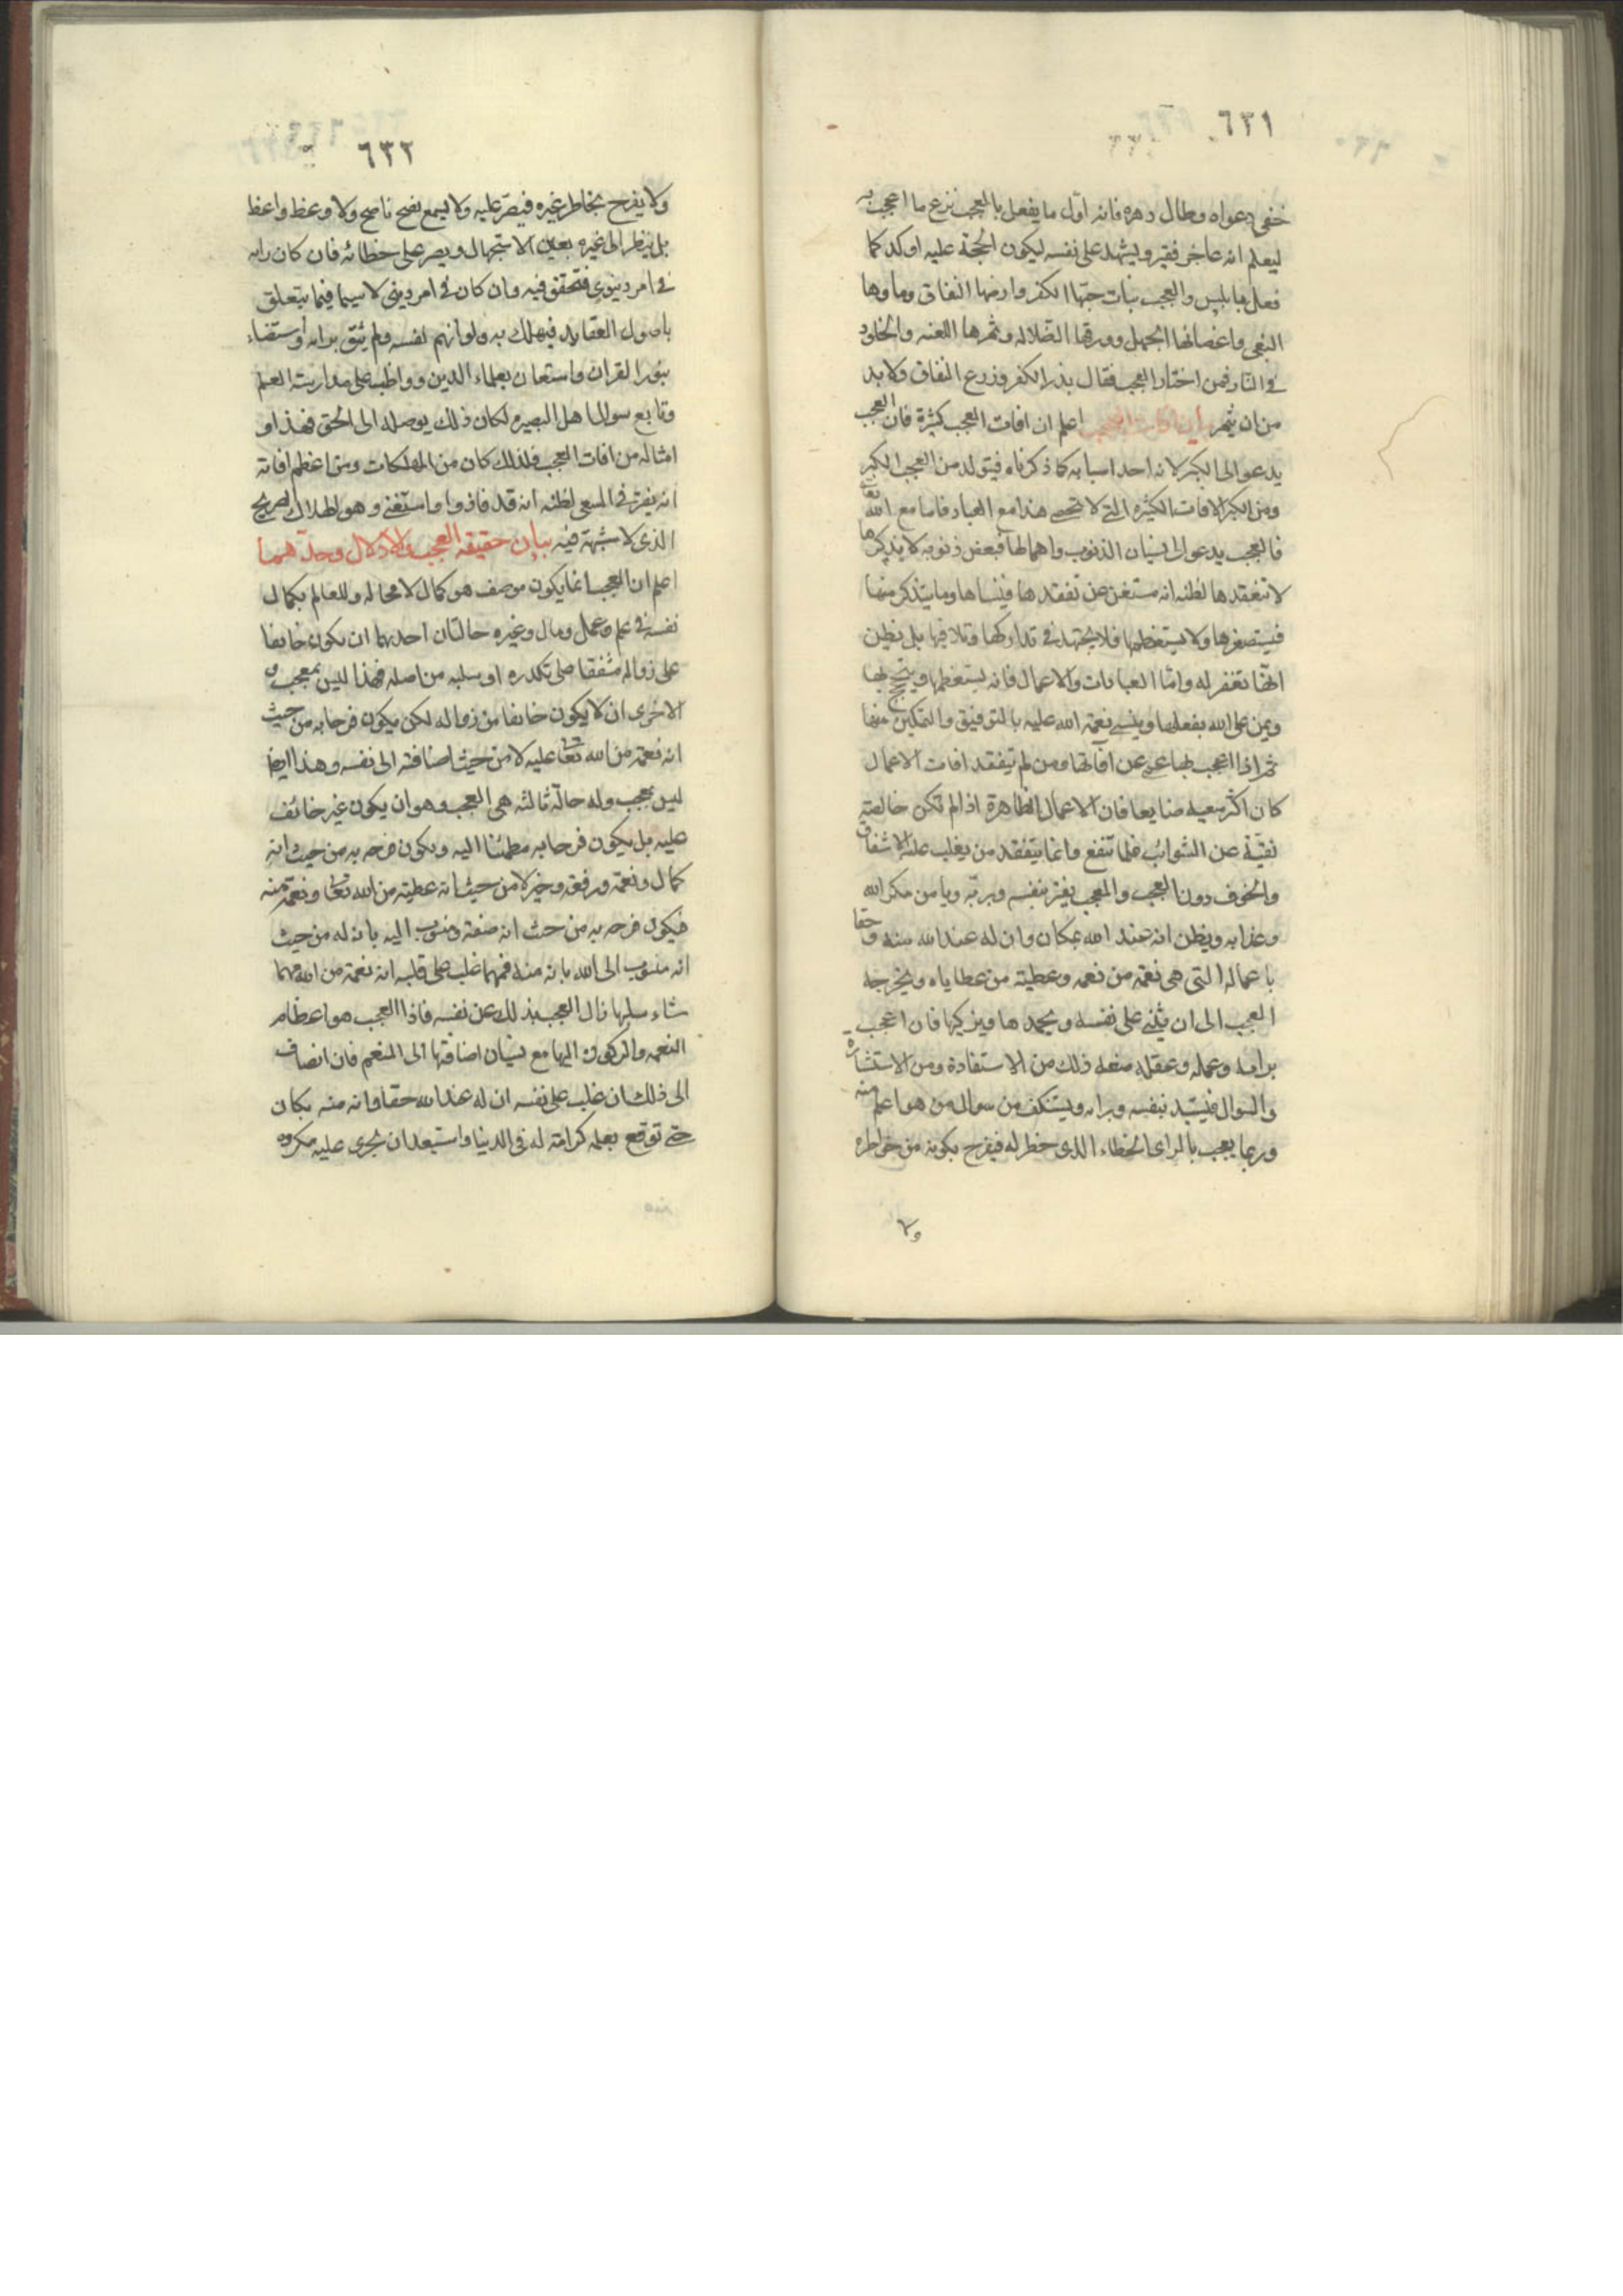 ٦٣١
خفى دعواه وطال دهره فانه اول ما يفعل بالمعجب نزع ما اعجب به
ليعلم انه عاجز فقير ويشهد على نفسه ليكون الحجة عليه اوكد كما
فعل بابليس والعجب نبات حبّها الكفر وارضها النفاق وماوها
البغى واغصانها الجهل وورقها الضلاله وثمرها اللعنه والخلود
فى النار فمن اختار العجب فقال بذر الكفر وزرع النفاق ولا بد
من ان يثمر بيان افات العجب اعلم ان افات العجب كثيرة فان العجب
يدعو الى الكبر لانه احد اسبابه كما ذكرناه فيتولد من العجب الكبر
ومن الكبر الافات الكثيره التى لا تحصى هذا مع العباد فاما مع الله تعالى
فالعجب يدعو الى نسيان الذنوب واهمالها فبعض ذنوبه لا يذكرها
لا تتفقدها لظنه انه مستغن عن تفقدها فينساها وما يتذكر منها
فيستصغرها ولا يستعظمها فلا يجتهد فى تداركها وتلافيها بل يظن
انها تغفر له وامّا العبادات والاعمال فانه يستعظمها ويتبجح بها
ويمن على الله بفعلها وينسى نعمة الله عليه بالتوفيق والتمكين منها
ثم اذا اعجب بها عمى عن آفاتها ومن لم يتفقد افات الاعمال
كان اكثر سعيه ضايعا فان الاعمال الظاهرة اذا لم تكن خالصة
نقيّة عن الشوائب فلما تنفع وانما يتفقد من يغلب عليه الاشفاق
والخوف دون العجب والمعجب يغتر بنفسه وبربّه ويامن مكر الله
وعذابه ويظن انه عند الله بمكان وان له عند الله منه وحقا
باعماله التى هى نعمة من نعمه وعطية من عطاياه ويخرجه
العجب الى ان يثنى على نفسه ويحمدها ويزكيها فان اعجب
برايه وعمله وعقله منعه ذلك من الاستفادة ومن الاستشاره
والسوال فيستبد بنفسه ورايه ويستنكف من سوال من هو اعلم منه
وربما يعجب بالراى الخطاء الذى خطر له فيفرح بكونه من خواطره
ولا
٦٣٢
ولا يفرح بخاطر غيره فيصرّ عليه ولا يسمع نصح ناصح ولا وعظ واعظ
بل ينظر الى غيره بعين الاستجهال ويصر على خطائه فان كان رايه
فى امر دنيوى فتحقق فيه وان كان فى امر دينى لا سيما فيما يتعلق
باصول العقايد فيهلك به ولو اتهم نفسه ولم يثق برايه واستضاء
بنور القران واستعان بعلماء الدين وواظب على مدارسة العلم
وتابع سوال اهل البصيره لكان ذلك يوصله الى الحق فهذا و
امثاله من افات العجب فلذلك كان من المهلكات ومن اعظم افاته
انه يفتر فى السعى لظنه انه قد فاز وانه استغنى وهو الهلاك الصريح
الذى لا شبهة فيه بيان حقيقه العجب والادلال وحدّهما
اعلم ان العجب انما يكون بوصف هو كمال لا محاله وللعالم بكمال
نفسه فى علم وعمل ومال وغيره حالتان احديهما ان يكون خايفا
على زواله مشفقا على تكدره او سلبه من اصله فهذا ليس بمعجب و
الاخرى ان لا يكون خايفا من زواله لكن يكون فرحا به من حيث
انه نعمة من الله تعالى عليه لا من حيث اضافته الى نفسه وهذا ايضا
ليس بمعجب وله حالة ثالثه هى العجب وهو ان يكون غير خائف
عليه بل يكون فرحا به مطمئنا اليه ويكون فرحه به من حيث انه
كمال ونعمة ورفعة وخير لا من حيث انه عطية من الله تعالى ونعمة منه
فيكون فرحه به من حيث انه صفته ومنسوب اليه بانه له من حيث
انه منسوب الى الله بانه منه فمهما غلب على قلبه انه نعمة من الله مهما
شاء سلبها زال العجب بذلك عن نفسه فاذا العجب هو اعظام
النعمه والركون اليها مع نسيان اضافتها الى المنعم فان انضاف
الى ذلك ان غلب على نفسه ان له عند الله حقا وانه منه بمكان
حتى توقع بعمله كرامة له فى الدنيا واستبعد ان يجرى عليه مكروه